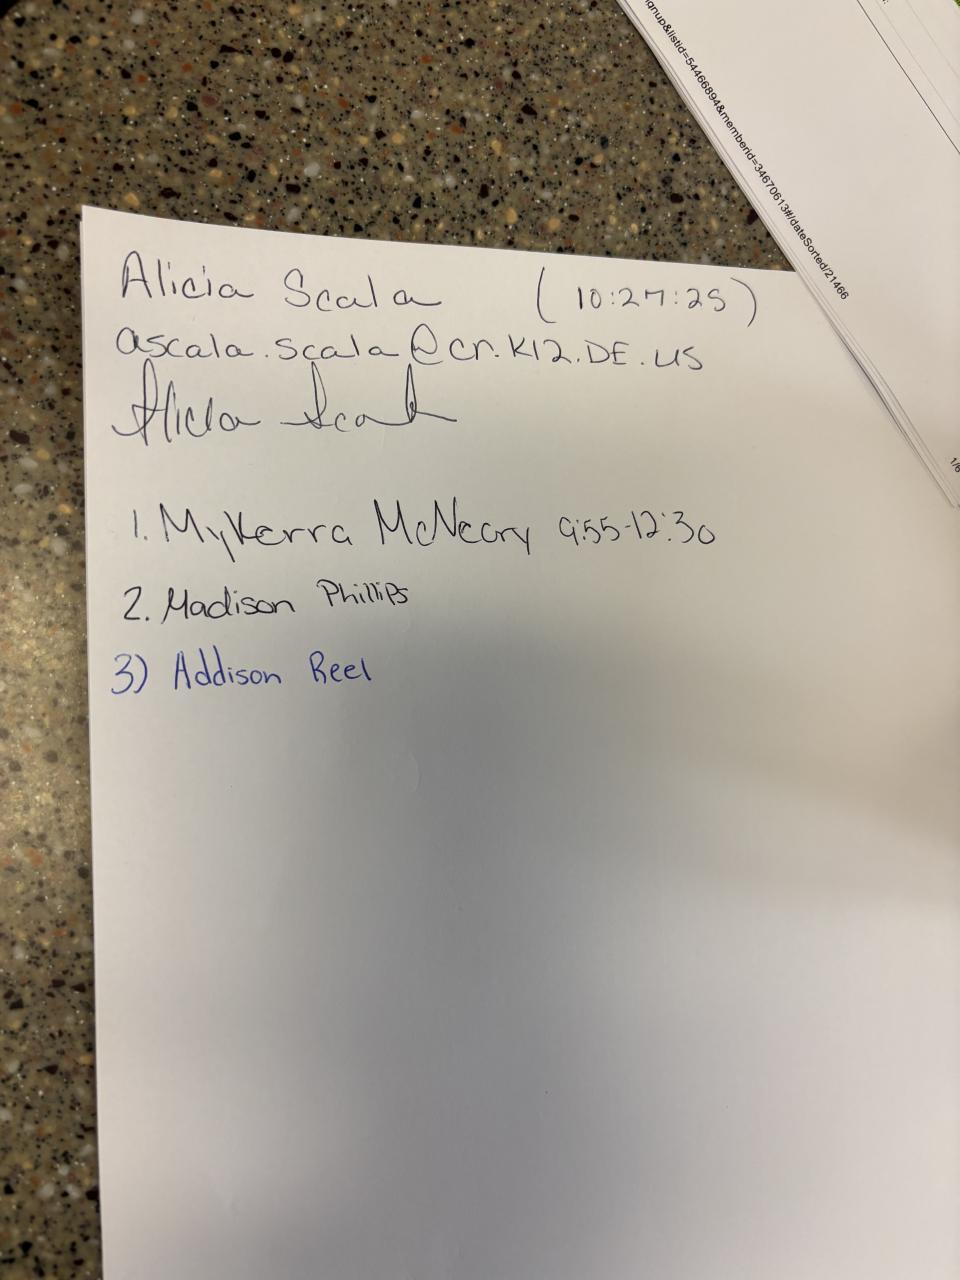 ignup&listid=54466894&memberid=34670613#/dateSorted/21466
1/6
Alicia Scala (10:27:25)
ascala.scala@cr.K12.DE.US
Alicia Scala
1. MyKerra McNeary 9:55-12:30
2. Madison Phillips
3) Addison Reel